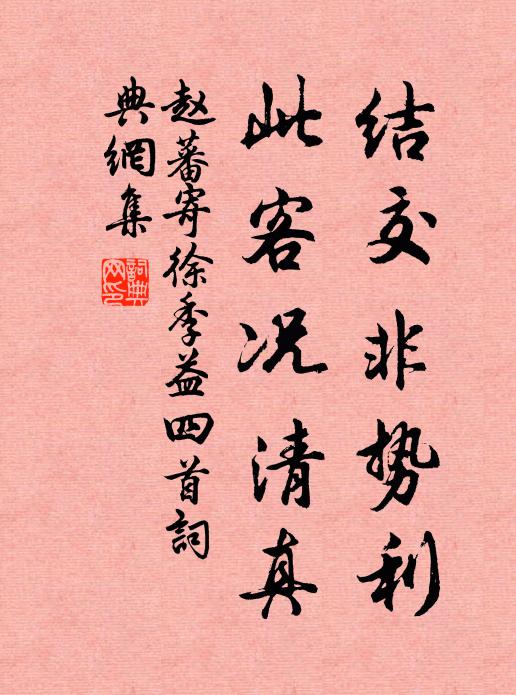 结交非势利
此客况清真
赵蕃寄徐季益四首詞
典網集
詞典
网印